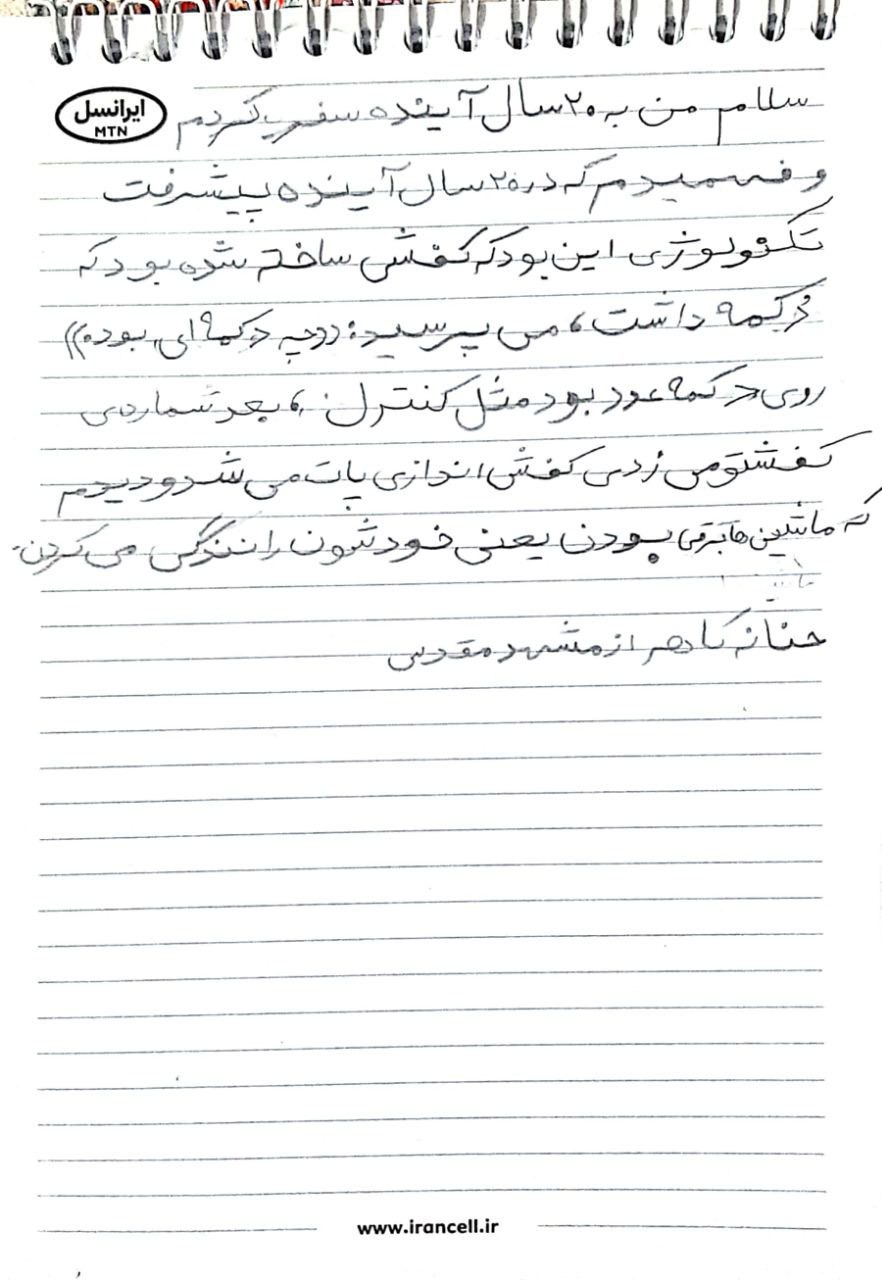 ایرانسل
MTN
سلام من به ۲۰ سال آینده سفر کردم
و فهمیدم که در ۲۰ سال آینده پیشرفت
تکنولوژی این بود که کفشی ساخته شده بود که
دکمه داشت، می پرسید: چه دکمه ای بود؟))
روی دکمه عدد بود مثل کنترل، بعد شماره‌ی
کفشتو می زدی کفش اندازی پات می شد و دیدم
که ماشین ها برقی بودن یعنی خودشون رانندگی می کردن.
حنانه از مشهد مقدس
www.irancell.ir